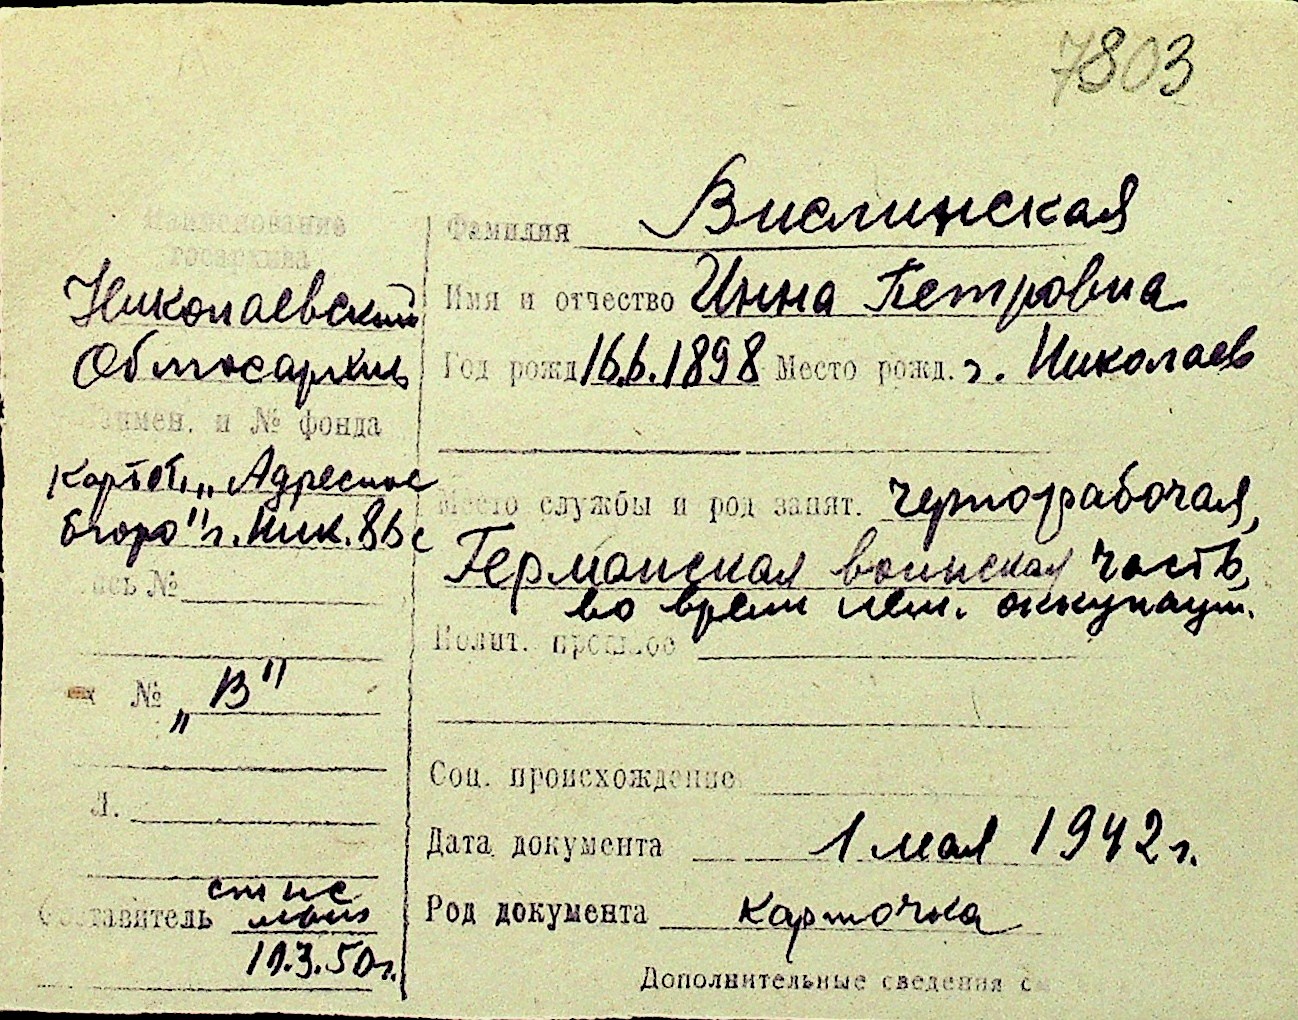 7803
Наименование
госархива
Николаевский
Облгосархив
Наимен. и № фонда
Картот. „Адресное
бюро" г. Ник.
№
№ „В"
Л.
Составитель
11.3.50г.
Фамилия Вислинская
Имя и отчество Инна Петровна
Год рожд 16.6.1898 Место рожд. г. Николаев
Место службы и род занят. чернорабочая,
Германская воинская часть,
во врем нем. оккупации.
Полит. прошлое
Соц. происхождение
Дата документа 1 мая 1942 г.
Род документа карточка
Дополнительные сведения